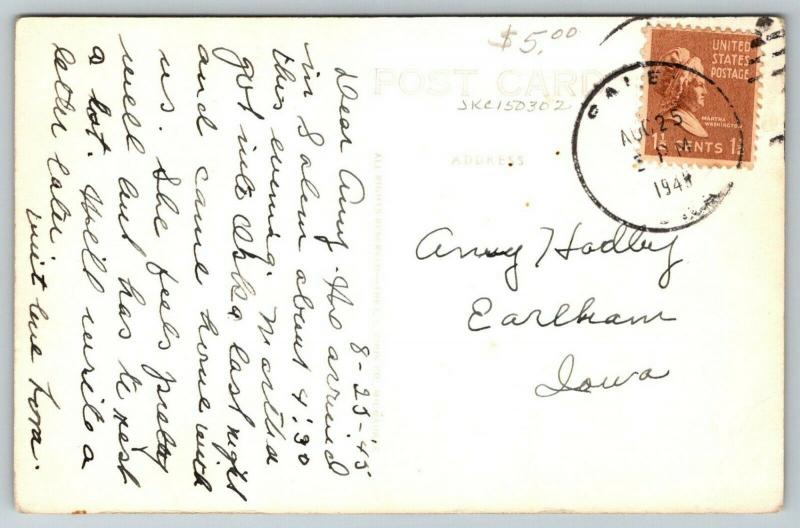 8-25-'45
Dear Amy. We arrived
in Salem about 4:30
this evening. Martha
got into Idaho last night
and came home with
us. She feels pretty
well but has to rest
a lot. Will write a
letter later
with love Lora.
$5.00
POST CARD
JKC150302
ADDRESS
UNITED
STATES
POSTAGE
MARTHA
WASHINGTON
1½ CENTS 1½
AUG 25
PM
1945
Amy Hadley
Earlham
Iowa